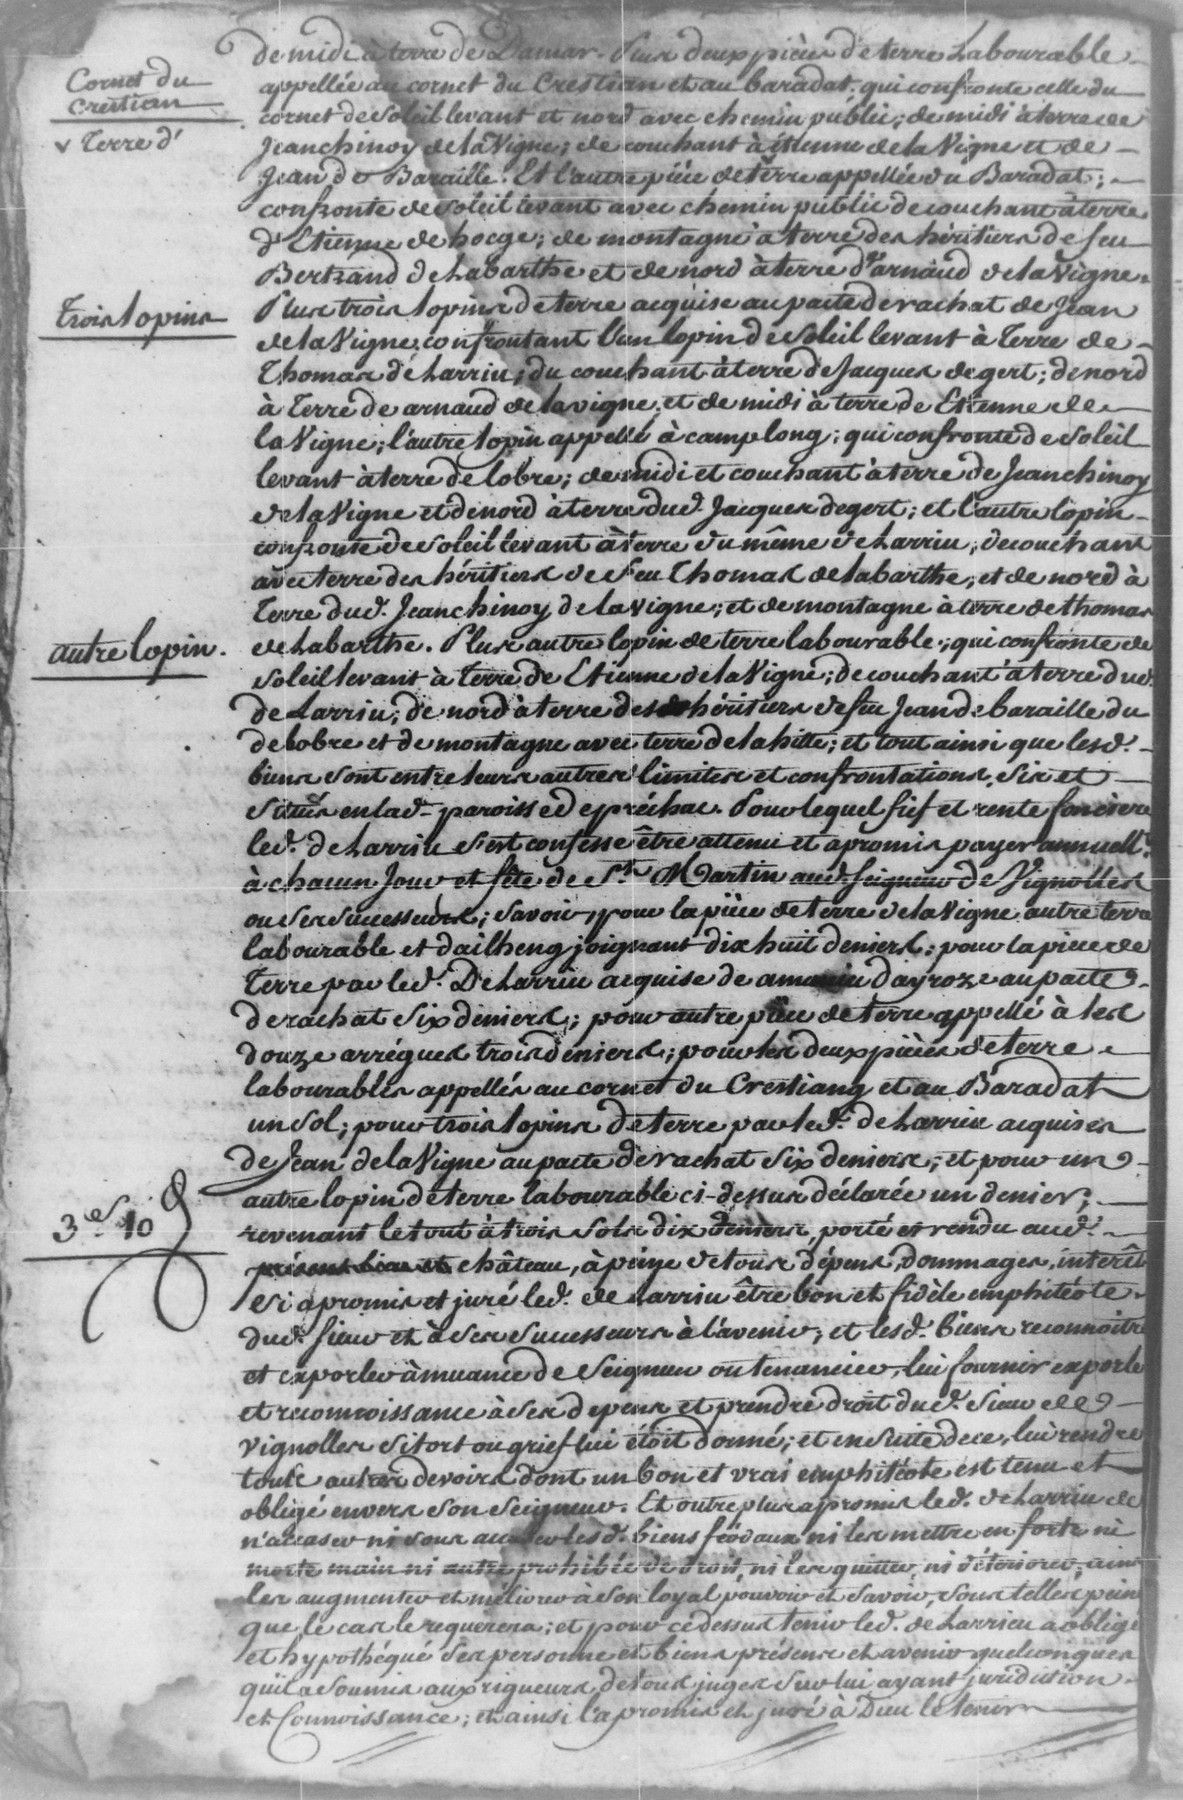 de midi à terre de Damar. Plus deux pièces de terre Labourable
Cornet du
Crestian
v Terre d'
appellée au cornet du Crestian et au baradat. qui confronte celle du
cornet de Soleil levant et nord avec chemin public; de midi à terre de
Jeanchinoy de la Vigne; de couchant à étienne de la Vigne et de
Jean de Baraille. Et l'autre pièce de terre appellée du Baradat;
confronte de Soleil levant avec chemin public de couchant à terre
d'Etienne de hocge; de montagne à terre des héritiers de feu
Bertrand de Labarthe et de nord à terre d'arnaud de la Vigne.
trois lopins
Plus trois lopins de terre acquise au pacte de rachat de Jean
de la Vigne, confrontant l'un lopin de Soleil levant à Terre de
Thomas de Larriu; du couchant à terre de Jacques degert; de nord
à Terre de arnaud de la vigne, et de midi à terre de Etienne de
la Vigne; l'autre lopin appellé à camplong; qui confronte de Soleil
levant à terre de lobre; de midi et couchant à terre de Jeanchinoy
de la Vigne et de nord à terre dud. Jacques degert; et l'autre lopin
confronte de Soleil levant à terre du même de Larriu, de couchant
avec terre des héritiers de feu Thomas de labarthe, et de nord à
Terre dud. Jeanchinoy de la vigne; et de montagne à terre de thomas
autre lopin.
de Labarthe. Plus autre lopin de terre labourable; qui confronte de
Soleil levant à Terre de Etienne de la Vigne; de couchant à terre dud.
de Larriu; de nord à terre des héritiers de feu Jean de baraille du
de lobre et de montagne avec terre de la hille; et tout ainsi que lesd.
biens sont entre leurs autres limites et confrontations, Sis et
Situés en lad. paroisse de préchac. Pour lequel fief et rente foncière
led. de Larriu s'est confessé être attenu et a promis payer annuellt.
à chacun Jour et fête de St. Martin aud. Seigneur de Vignolles
ou ses successeurs; savoir, pour la pièce de terre de la Vigne autre terre
labourable et dailheng joignant dix huit deniers; pour la pièce de
Terre par led. De Larriu acquise de amaniu dayroze au pacte
de rachat six deniers; pour autre pièce de terre appellé à les
douze arrégues trois deniers; pour les deux pièces de terre
labourables appellés au cornet du Crestiang et au Baradat
un Sol; pour trois lopins de terre par led. de Larriu acquises
de Jean de la Vigne au pacte de rachat six deniers; et pour un
autre lopin de terre labourable ci-dessus déclarée un denier;
3s. 10 d
revenant le tout à trois sols dix deniers, porté et rendu aud.
présent lieu et château, à peine de tous dépens, dommages, intérêts
Si a promis et juré led. de Larriu être bon et fidèle emphitéote
dud. Sieur et à ses Successeurs à l'avenir; et lesd. biens reconnoitre
et exporler à muance de Seigneur ou tenancier, lui fournir exporle
et reconnoissance à ses depens et prendre droit dud. Sieur de
Vignolles si tort ou grief lui étoit donné; et ensuite de ce, lui rendre
tous autres devoirs dont un bon et vrai emphitéote est tenu et
obligé envers son Seigneur. Et outre plus a promis led. de Larriu de
n'acaser ni sous acaser lesd. biens féodaux ni les mettre en forte ni
morte main ni autre prohibée de droit, ni les quitter, ni détériorer, ains
les augmenter et méliorer à son loyal pouvoir et Savoir, Sous telles peines
que le cas le requerera; et pour ce dessus tenir led. de Larrieu a obligé
et hypothéqué Ses personne et biens présens et avenir quelconques
qu'il a Soumis aux rigueurs de tous juges Sur lui ayant juridiction
et Connoissance; et ainsi l'a promis et juré à Dieu le tenir